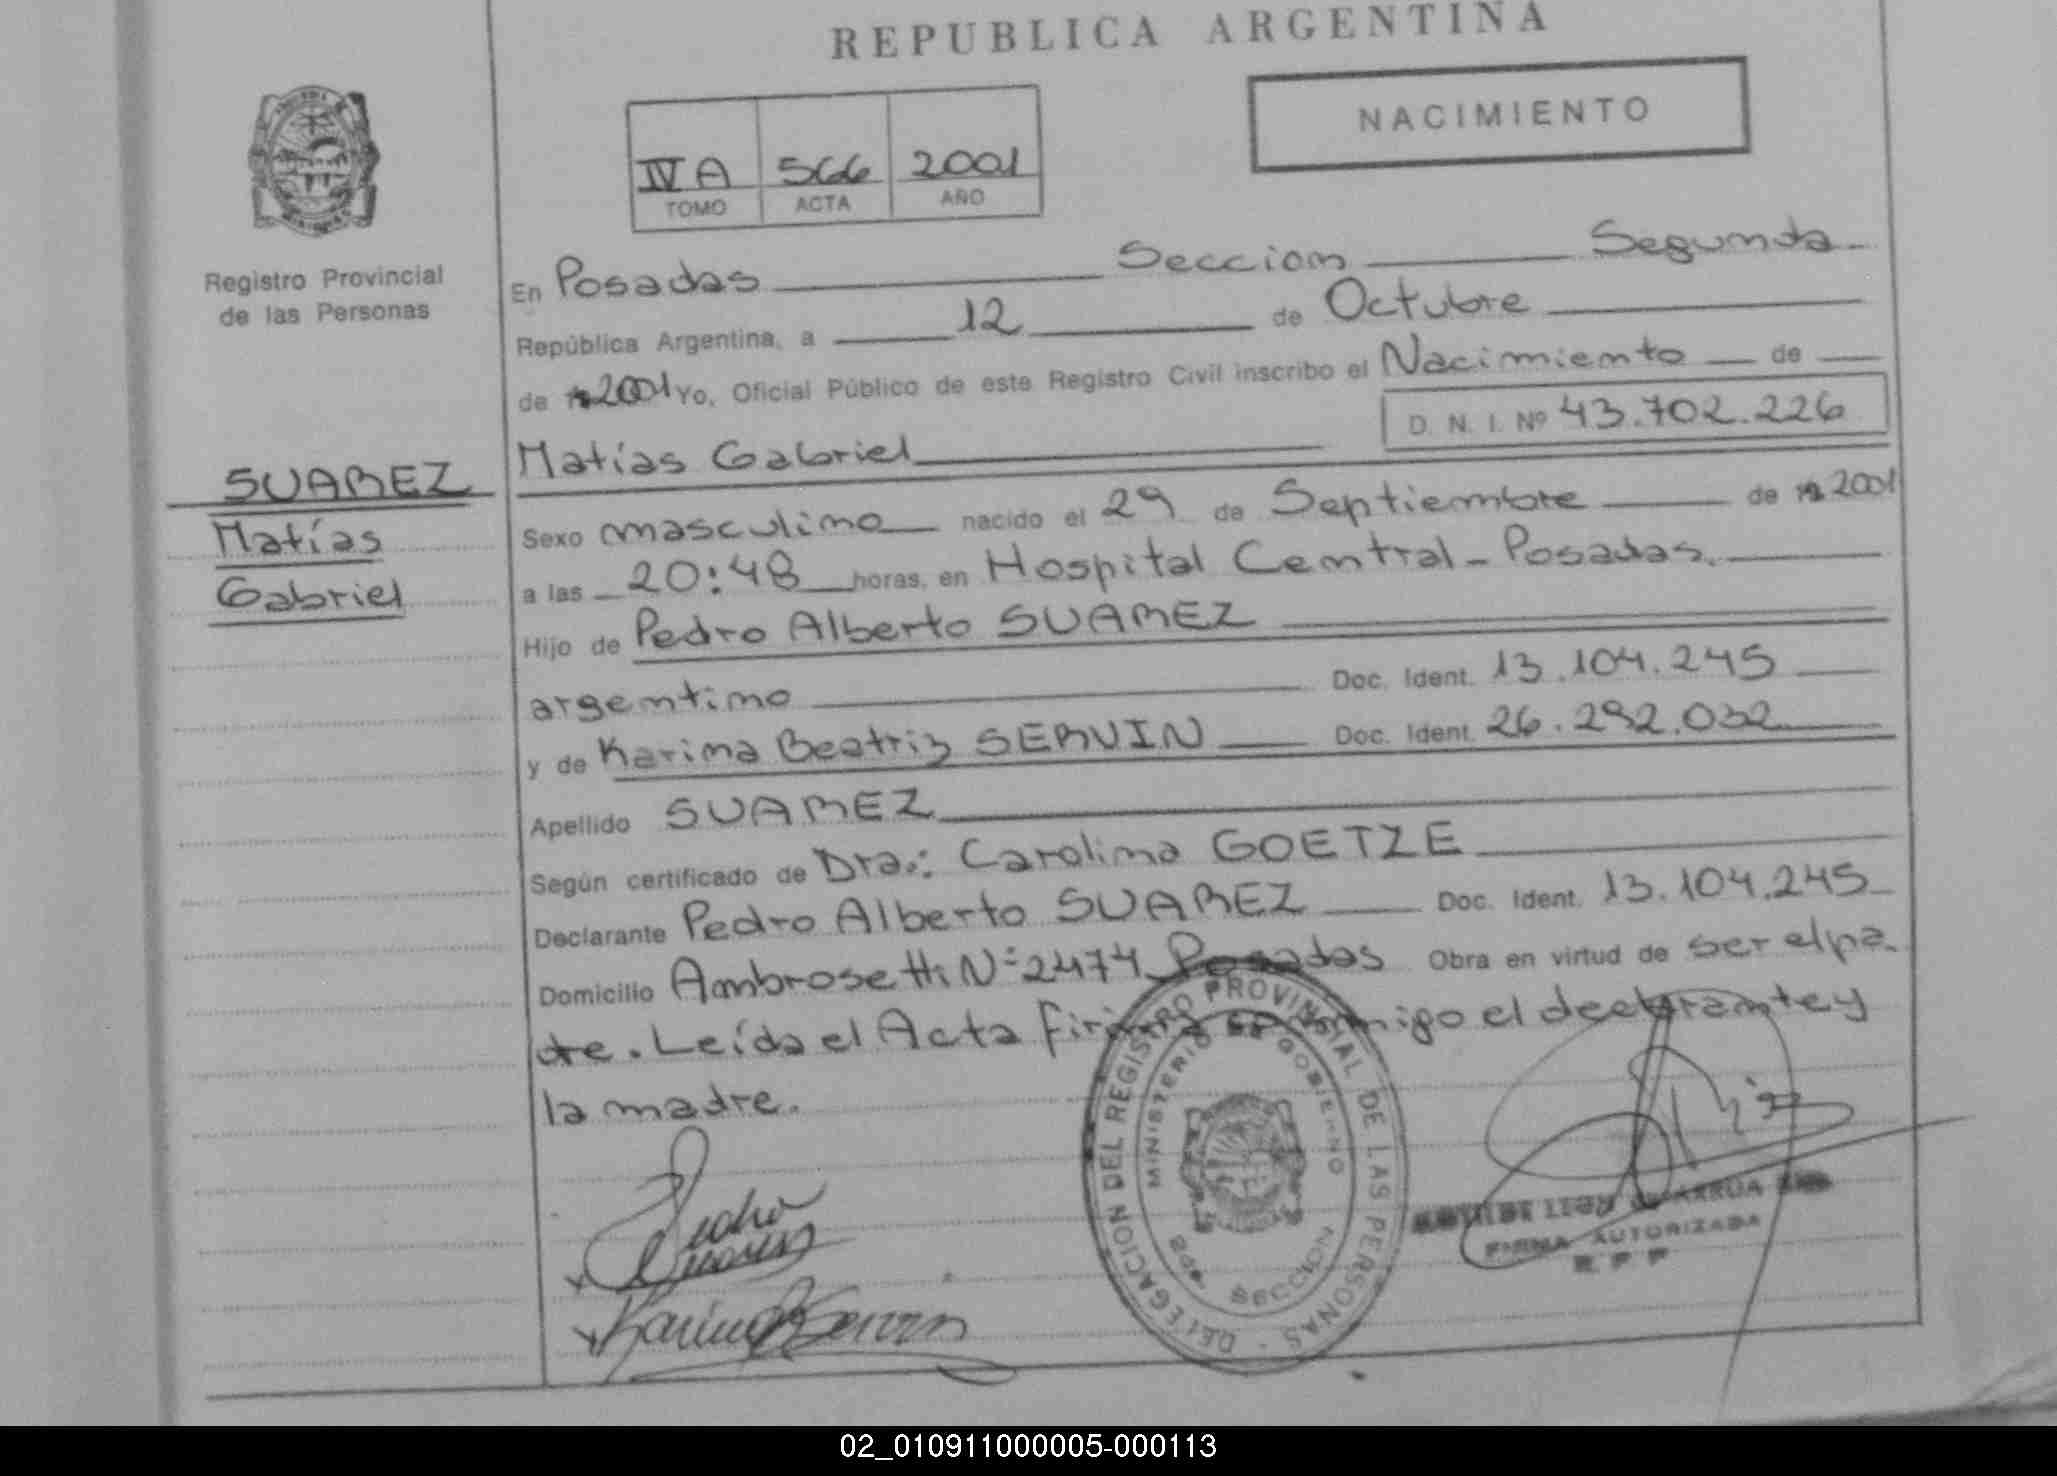 REPUBLICA ARGENTINA
NACIMIENTO
IV A 566 2001
TOMO ACTA AÑO
Registro Provincial
de las Personas
En Posadas Seccion Segunda
República Argentina, a 12 de Octubre
de 2001 Yo, Oficial Público de este Registro Civil inscribo el Nacimiento de
D. N. I. Nº 43.702.226
Matías Gabriel
SUAREZ
Matías
Gabriel
Sexo masculino nacido el 29 de Septiembre de 2001
a las 20:48 horas, en Hospital Central - Posadas.
Hijo de Pedro Alberto SUAREZ
argentino Doc. Ident. 13.104.245
y de Karina Beatriz SERVIN Doc. Ident. 26.292.032
Apellido SUAREZ
Según certificado de Dra.: Carolina GOETZE
Declarante Pedro Alberto SUAREZ Doc. Ident. 13.104.245
Domicilio Ambrosetti Nº 2474 Posadas Obra en virtud de ser el pa-
dre. Leída el Acta firma conmigo el declarante y
la madre.
DELEGACION DEL REGISTRO PROVINCIAL DE LAS PERSONAS
MINISTERIO DE GOBIERNO
SECCION
Pedro
Suarez
Karina B Servin
FIRMA AUTORIZADA
R P P
02_010911000005-000113